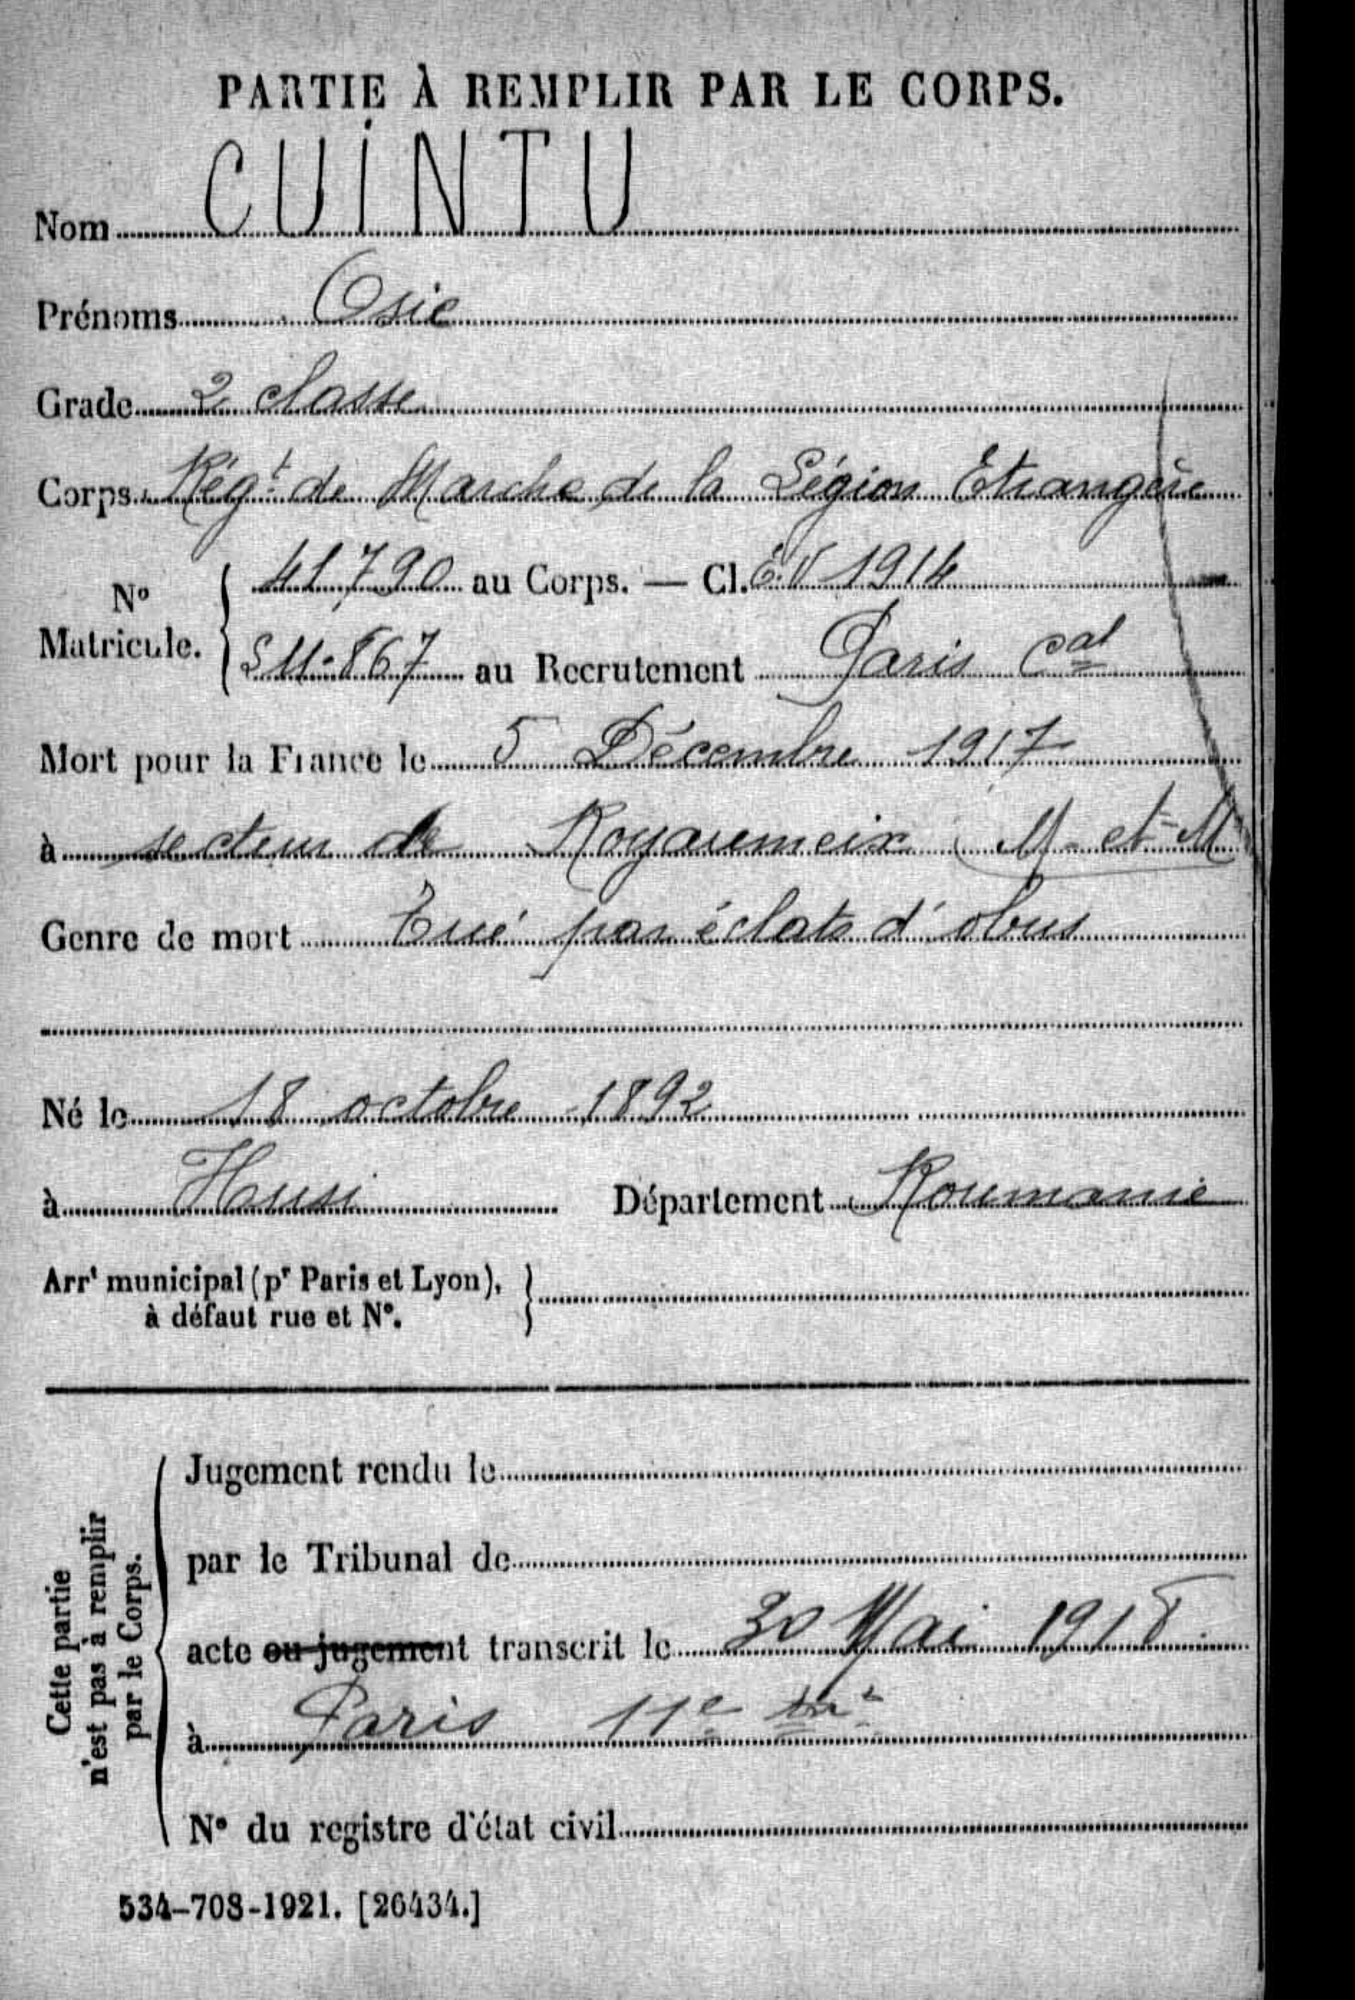 PARTIE À REMPLIR PAR LE CORPS.
Nom CUINTU
Prénoms Osic
Grade 2 classe
Corps Régt de Marche de la Légion Etrangère
No Matricule. 41790 au Corps. — Cl. E.V 1914
SM. 867 au Recrutement Paris Cal
Mort pour la France le 5 Décembre 1917
à secteur de Royaumeix (M-et-M
Genre de mort Tué par éclats d'obus
Né le 18 octobre 1892
à Husi Département Roumanie
Arrt municipal (pr Paris et Lyon),
à défaut rue et No.
Cette partie
n'est pas à remplir
par le Corps.
Jugement rendu le
par le Tribunal de
acte ou jugement transcrit le 30 Mai 1918.
à Paris 11e
No du registre d'état civil
534-708-1921. [26434.]